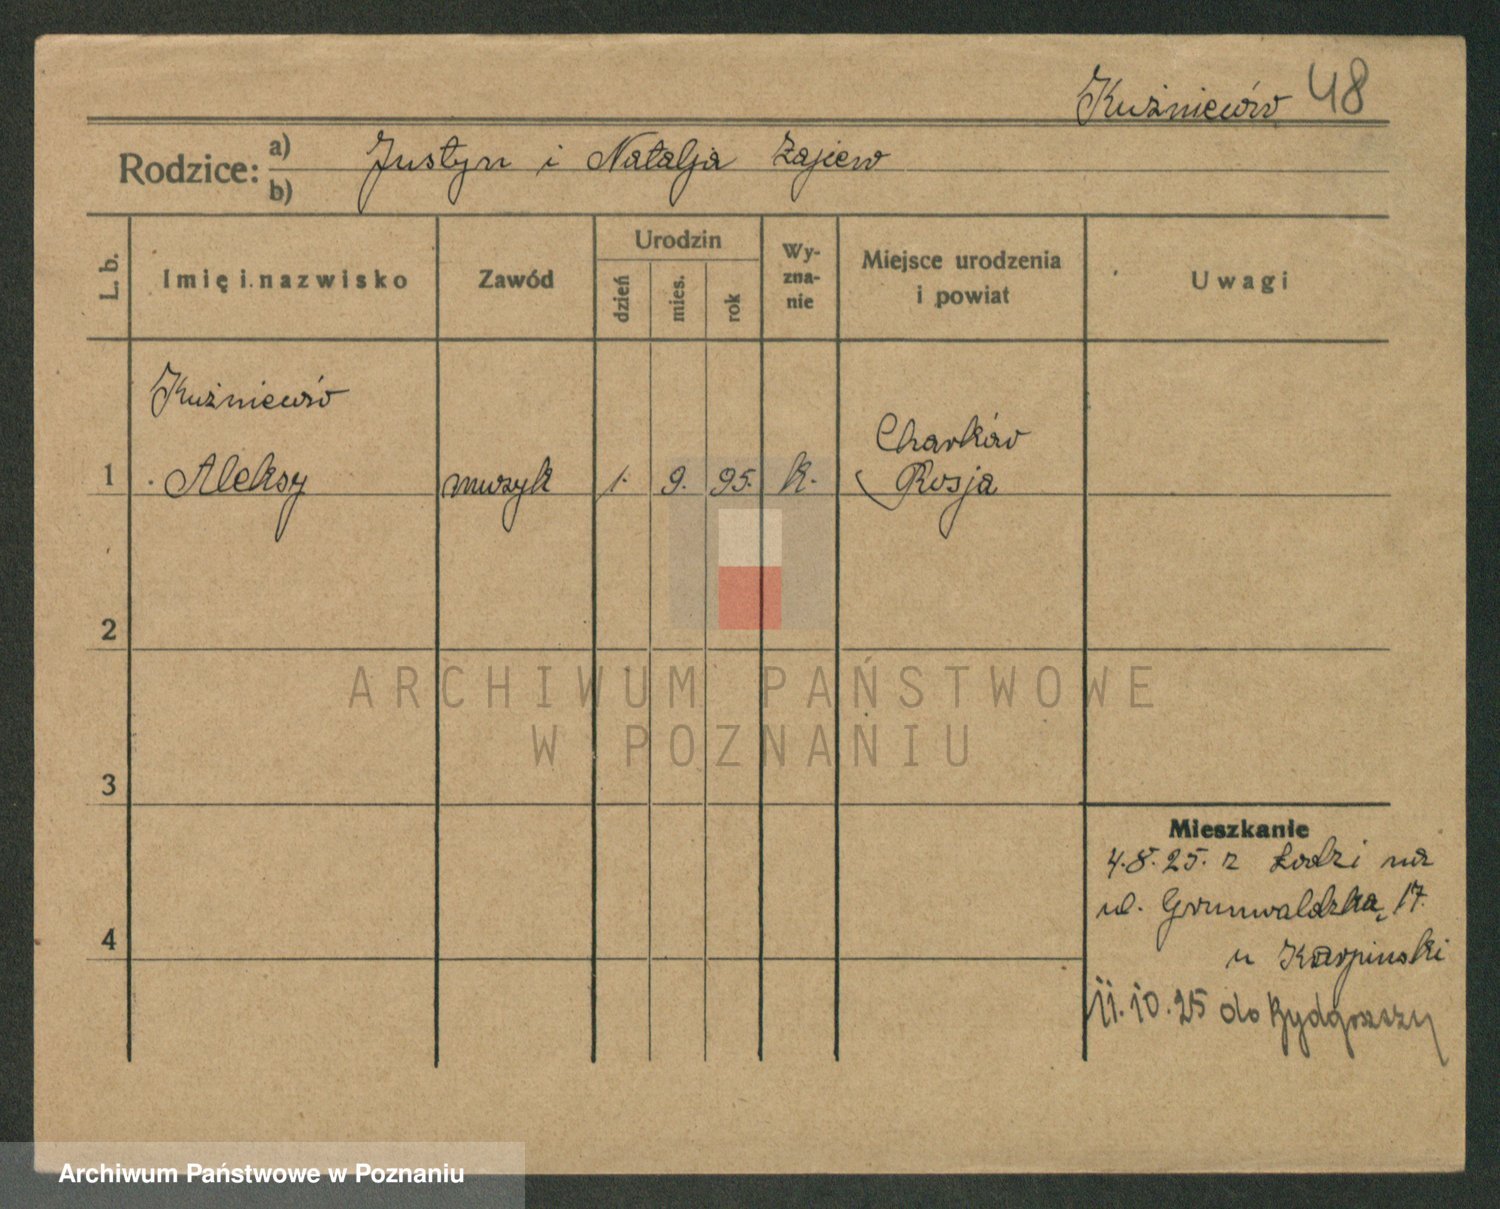 Kuźniewów 48
Rodzice: a) Justyn i Natalja Zajew
b)
L. b. Imię i nazwisko Zawód Urodzin dzień mies. rok Wy-zna-nie Miejsce urodzenia i powiat Uwagi
Kuźniewów
1 Aleksy muzyk 1. 9. 95. k. Charków
Rosja
2
3
4
Mieszkanie
4.8.25. z Łodzi na
ul. Grunwaldzka 17.
u Karpinski
11.10.25 do Bydgoszczy
ARCHIWUM PAŃSTWOWE
W POZNANIU
Archiwum Państwowe w Poznaniu